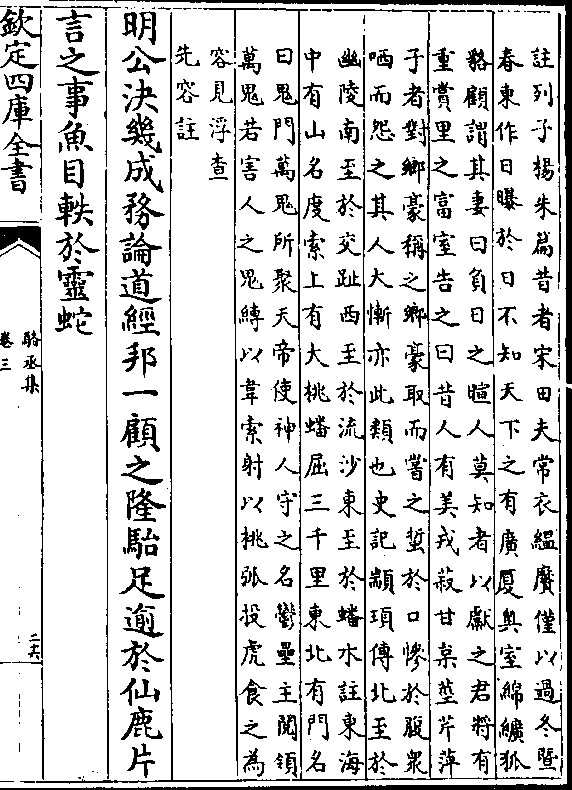 註列子楊朱篇昔者宋田夫常衣縕黂僅以過冬暨
春東作日曝於日不知天下之有廣厦奥室綿纊狐
貉顧謂其妻曰負日之暄人莫知者以獻之君將有
重賞里之富室告之曰昔人有美戎菽甘枲莖芹萍
子者對鄉豪稱之鄉豪取而嘗之蜇於口慘於腹衆
哂而怨之其人大慚亦此類也史記顓頊傳北至於
幽陵南至於交趾西至於流沙東至於蟠木註東海
中有山名度索上有大桃蟠屈三千里東北有門名
曰鬼門萬鬼所聚天帝使神人守之名鬱壘主閱領
萬鬼若害人之鬼縛以葦索射以桃弧投虎食之為
容見浮查
先容註
明公決幾成務論道經邦一顧之隆駘足逾於仙鹿片
言之事魚目軼於靈蛇
欽定四庫全書
駱丞集
卷三
二六